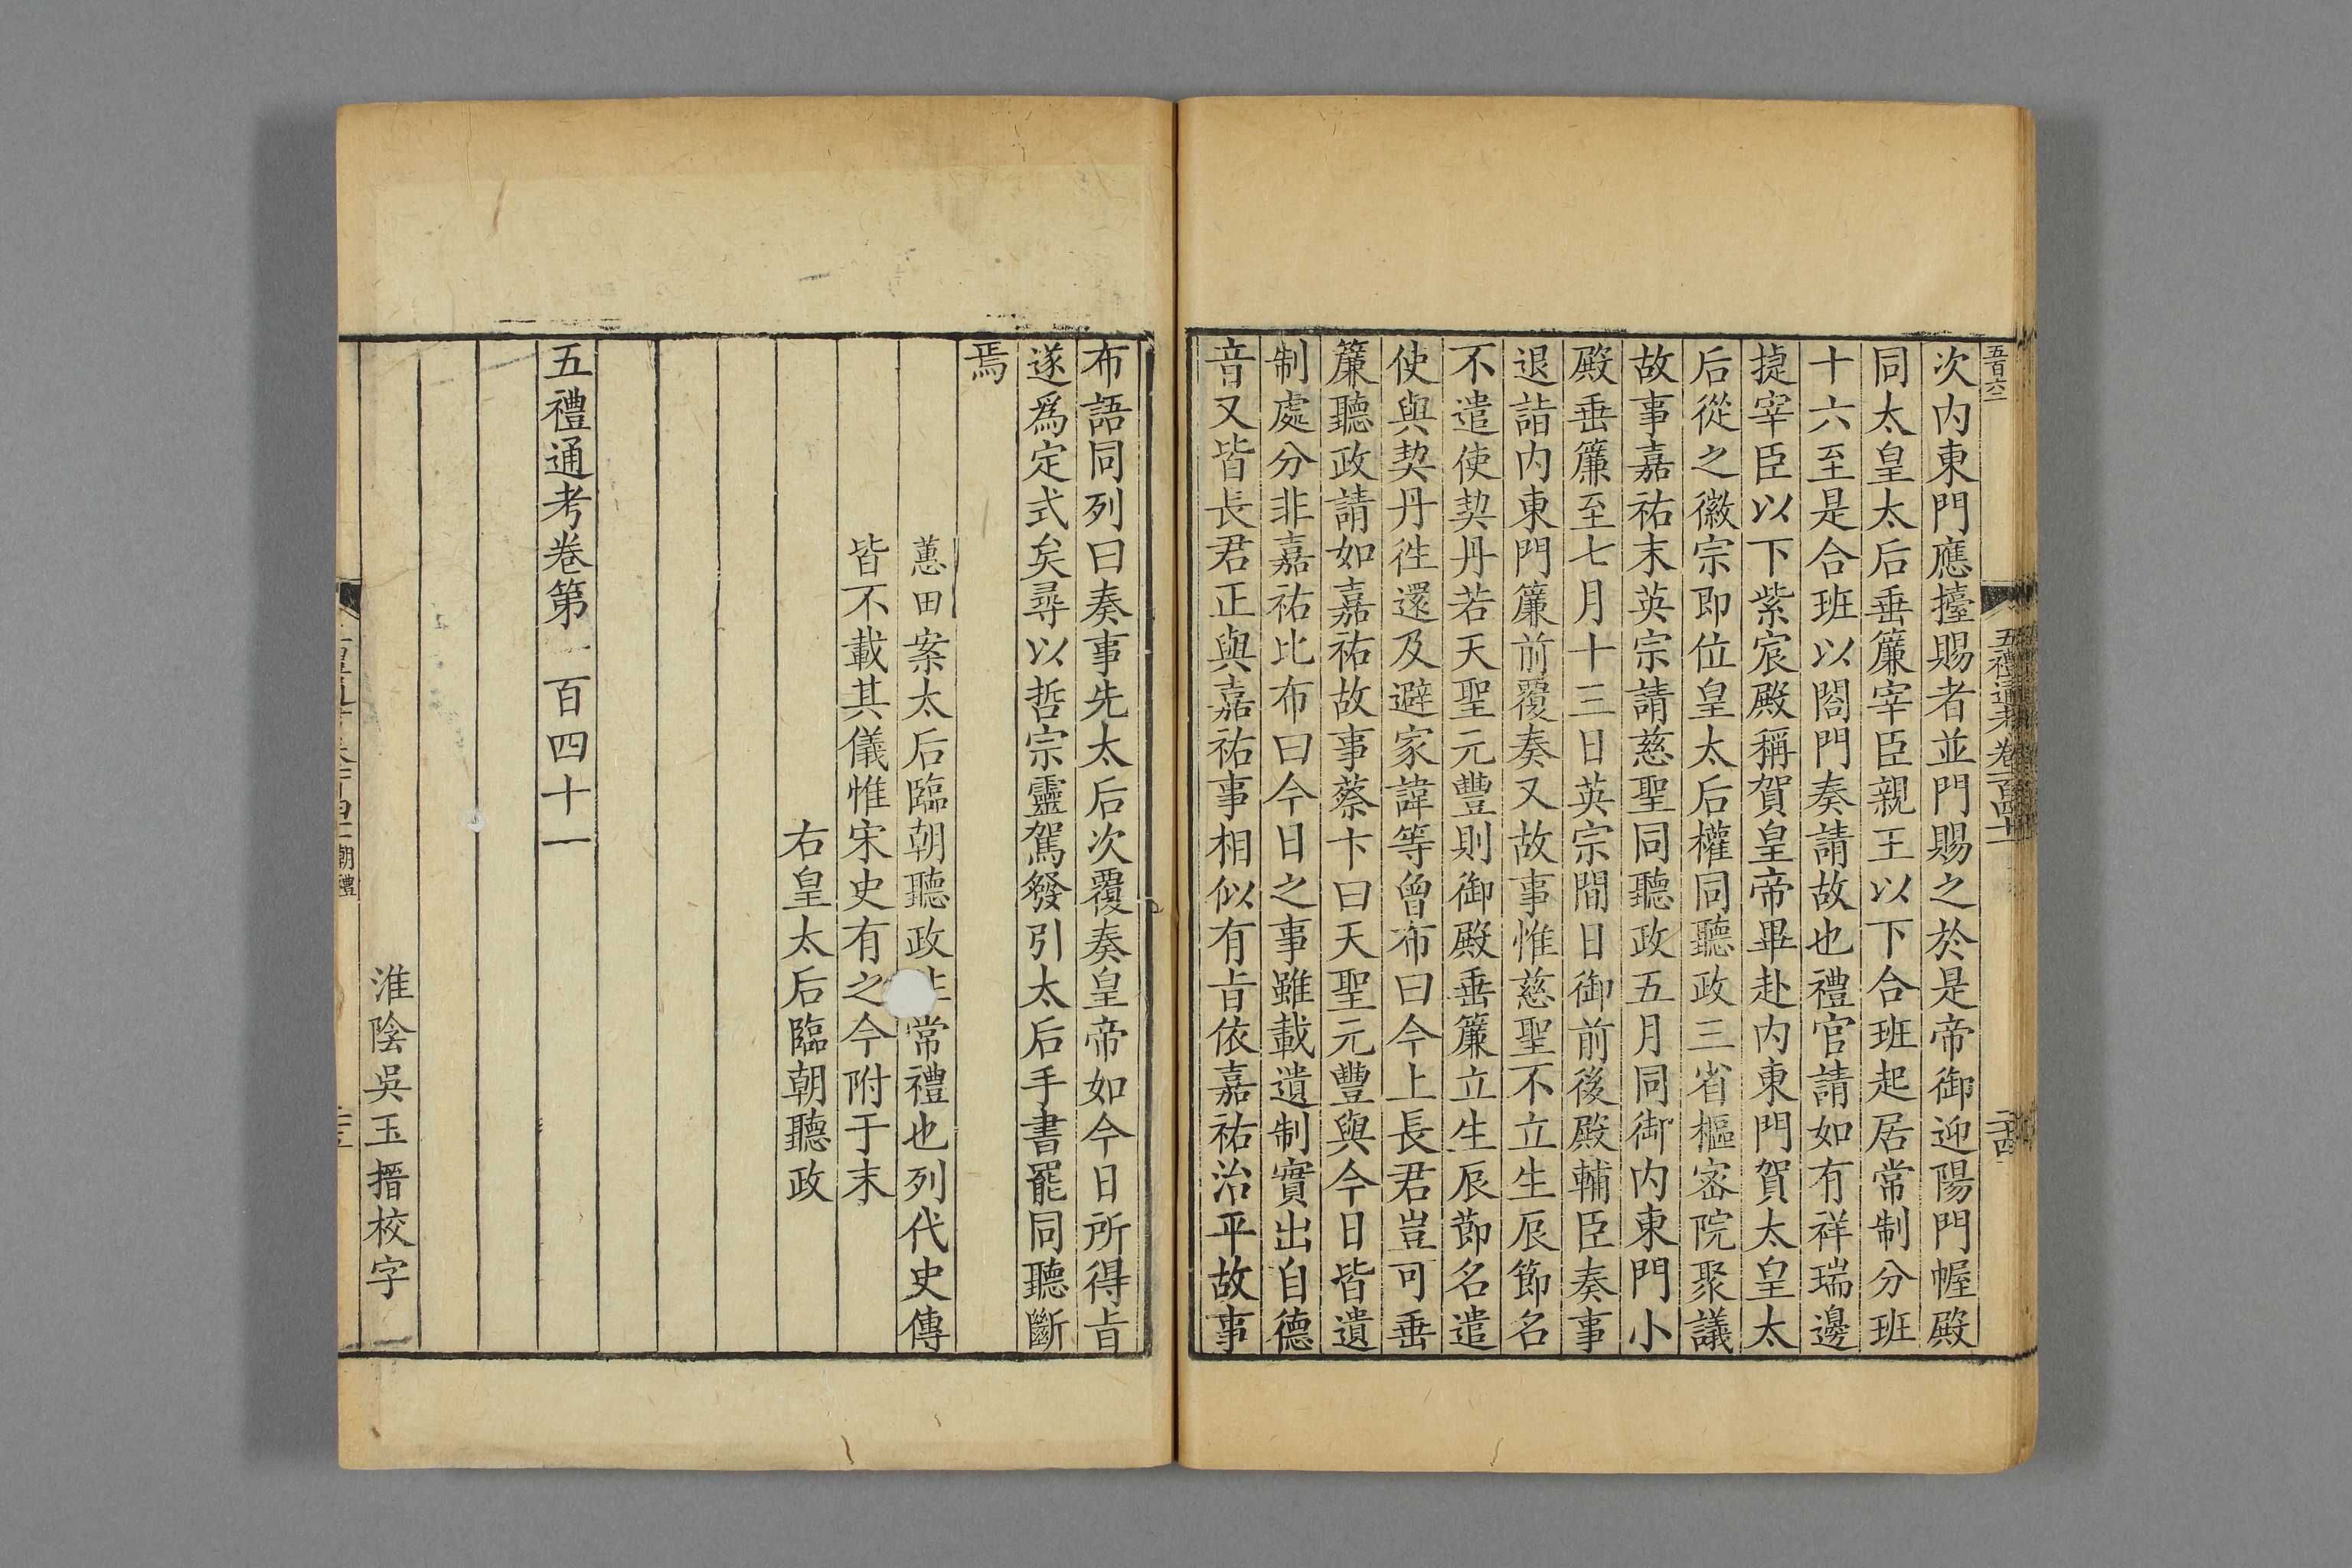 五百六二
五禮通考卷一百四十一
二十四
次内東門應擡賜者並門賜之於是帝御迎陽門幄殿
同太皇太后垂簾宰臣親王以下合班起居常制分班
十六至是合班以閤門奏請故也禮官請如有祥瑞邊
捷宰臣以下紫宸殿稱賀皇帝畢赴内東門賀太皇太
后從之徽宗即位皇太后權同聽政三省樞密院聚議
故事嘉祐末英宗請慈聖同聽政五月同御内東門小
殿垂簾至七月十三日英宗間日御前後殿輔臣奏事
退詣内東門簾前覆奏又故事惟慈聖不立生辰節名
不遣使契丹若天聖元豐則御殿垂簾立生辰節名遣
使與契丹徃還及避家諱等曾布曰今上長君豈可垂
簾聽政請如嘉祐故事蔡卞曰天聖元豐與今日皆遺
制處分非嘉祐比布曰今日之事雖載遺制實出自德
音又皆長君正與嘉祐事相似有旨依嘉祐治平故事
布語同列曰奏事先太后次覆奏皇帝如今日所得旨
遂爲定式矣尋以哲宗靈駕發引太后手書罷同聽斷
焉
蕙田案太后臨朝聽政常禮也列代史傳
皆不載其儀惟宋史有之今附于末
右皇太后臨朝聽政
五禮通考卷第一百四十一
淮陰吳玉搢校字
朝禮